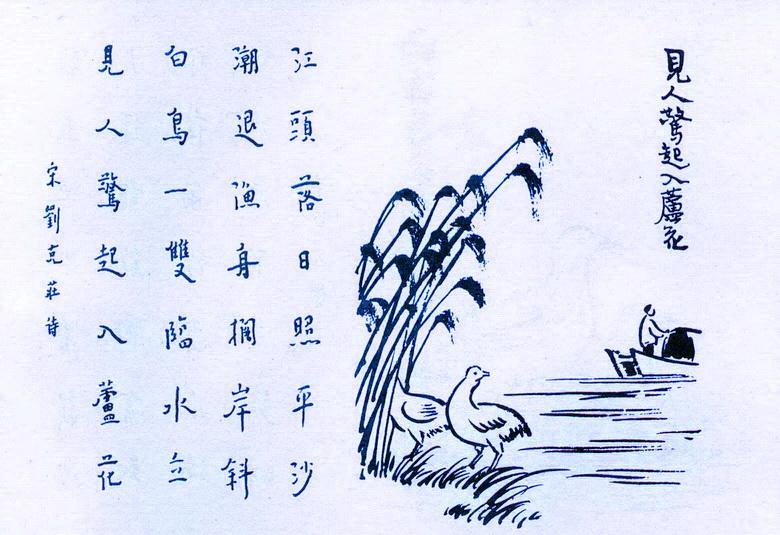 見人驚起入蘆花
江頭落日照平沙
潮退漁舟擱岸斜
白鳥一雙臨水立
見人驚起入蘆花
宋劉克莊詩